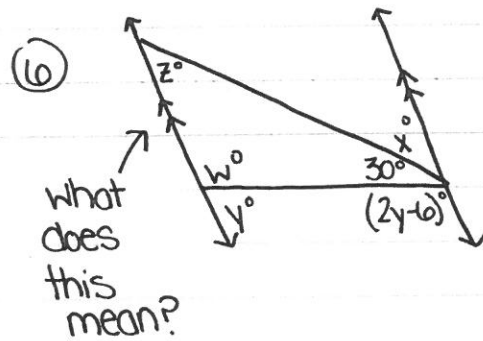 6
z°
x°
30°
w°
y°
(2y-6)°
what
does
this
mean?